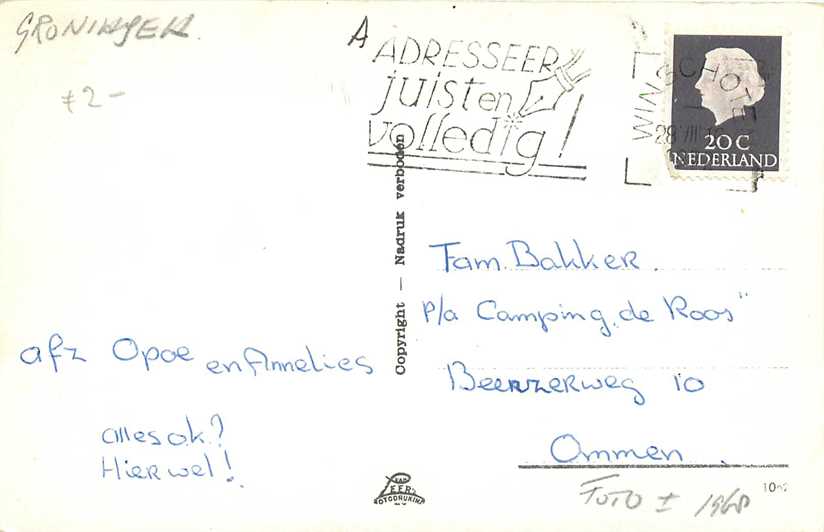 GRONINGEN
≠2-
A
ADRESSEER
juist en
volledig!
WINSCHOTE
28 VIII
20 C
NEDERLAND
Copyright — Nadruk verboden
Fam. Bakker.
p/a Camping „de Roos"
Beerzerweg 10
Ommen.
afz Opoe en Annelies
alles ok?
Hier wel!
FOTO ± 1968